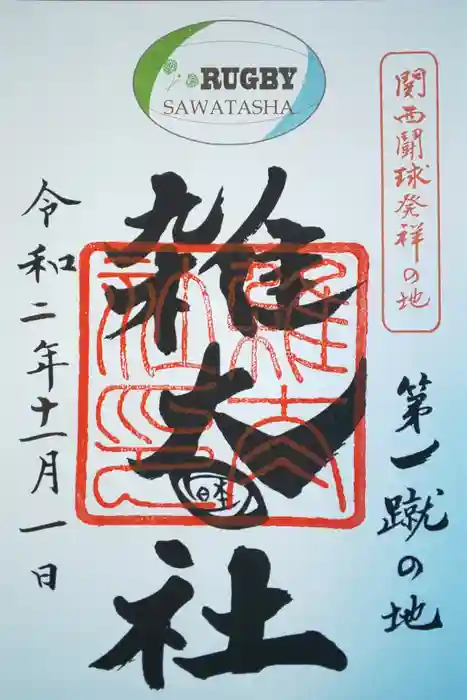 RUGBY
SAWATASHA
関西闘球発祥の地
第一蹴の地
雑太社
令和二年十一月一日